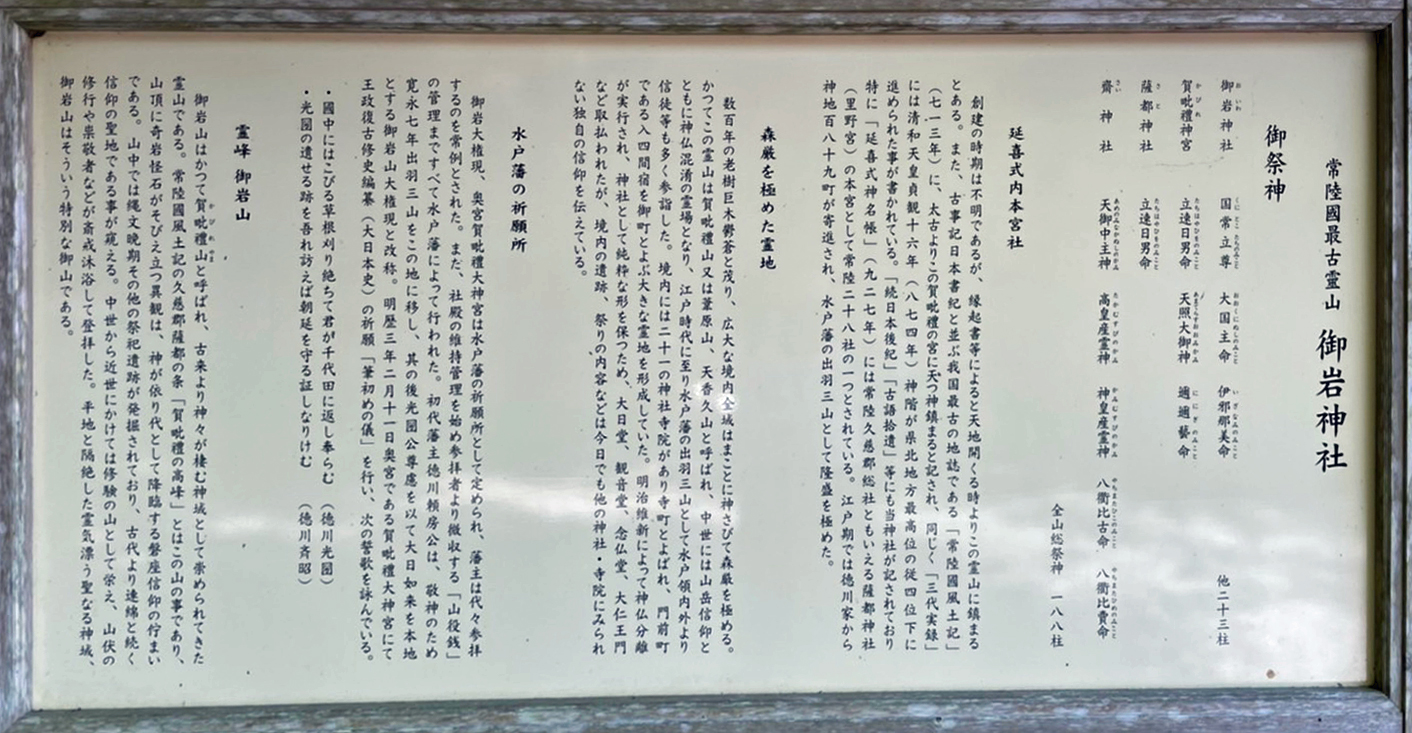 常陸國最古霊山 御岩神社
御祭神
御岩神社 国常立尊 大国主命 伊邪那美命 他二十三柱
賀毗禮神宮 立速日男命 天照大御神 邇邇藝命
薩都神社 立速日男命
齋神社 天御中主神 高皇産霊神 神皇産霊神 八衢比古命 八衢比賣命
全山総祭神 一八八柱
延喜式内本宮社
創建の時期は不明であるが、縁起書等によると天地開くる時よりこの霊山に鎮まる
とある。また、古事記日本書紀と並ぶ我国最古の地誌である「常陸國風土記」
(七一三年)に、太古よりこの賀毗禮の宮に天つ神鎮まると記され、同じく「三代実録」
には清和天皇貞観十六年(八七四年)神階が県北地方最高位の従四位下に
進められた事が書かれている。「続日本後紀」「古語拾遺」等にも当神社が記されており
特に「延喜式神名帳」(九二七年)には常陸久慈郡総社ともいえる薩都神社
(里野宮)の本宮として常陸二十八社の一つとされている。江戸期では徳川家から
神地百八十九町が寄進され、水戸藩の出羽三山として隆盛を極めた。
森厳を極めた霊地
数百年の老樹巨木鬱蒼と茂り、広大な境内全域はまことに神さびて森厳を極める。
かつてこの霊山は賀毗禮山又は葦原山、天香久山と呼ばれ、中世には山岳信仰と
ともに神仏混淆の霊場となり、江戸時代に至り水戸藩の出羽三山として水戸領内外より
信徒等も多く参詣した。境内には二十一の神社寺院があり寺町とよばれ、門前町
である入四間宿を御町とよぶ大きな霊地を形成していた。明治維新によって神仏分離
が実行され、神社として純粋な形を保つため、大日堂、観音堂、念仏堂、大仁王門
など取払われたが、境内の遺跡、祭りの内容などは今日でも他の神社・寺院にみられ
ない独自の信仰を伝えている。
水戸藩の祈願所
御岩大権現、奥宮賀毗禮大神宮は水戸藩の祈願所として定められ、藩主は代々参拝
するのを常例とされた。また、社殿の維持管理を始め参拝者より徴収する「山役銭」
の管理まですべて水戸藩によって行われた。初代藩主徳川頼房公は、敬神のため
寛永七年出羽三山をこの地に移し、其の後光圀公尊慮を以て大日如来を本地
とする御岩山大権現と改称。明歴三年二月十一日奥宮である賀毗禮大神宮にて
王政復古修史編纂(大日本史)の祈願「筆初めの儀」を行い、次の誓歌を詠んでいる。
・國中にはこびる草根刈り絶ちて君が千代田に返し奉らむ (徳川光圀)
・光圀の遺せる跡を吾れ訪えば朝廷を守る証しなりけむ (徳川斉昭)
霊峰 御岩山
御岩山はかつて賀毗禮山と呼ばれ、古来より神々が棲む神域として崇められてきた
霊山である。常陸國風土記の久慈郡薩都の条「賀毗禮の高峰」とはこの山の事であり、
山頂に奇岩怪石がそびえ立つ異観は、神が依り代として降臨する磐座信仰の佇まい
である。山中では縄文晩期その他の祭祀遺跡が発掘されており、古代より連綿と続く
信仰の聖地である事が窺える。中世から近世にかけては修験の山として栄え、山伏の
修行や崇敬者などが斎戒沐浴して登拝した。平地と隔絶した霊気漂う聖なる神域、
御岩山はそういう特別な御山である。